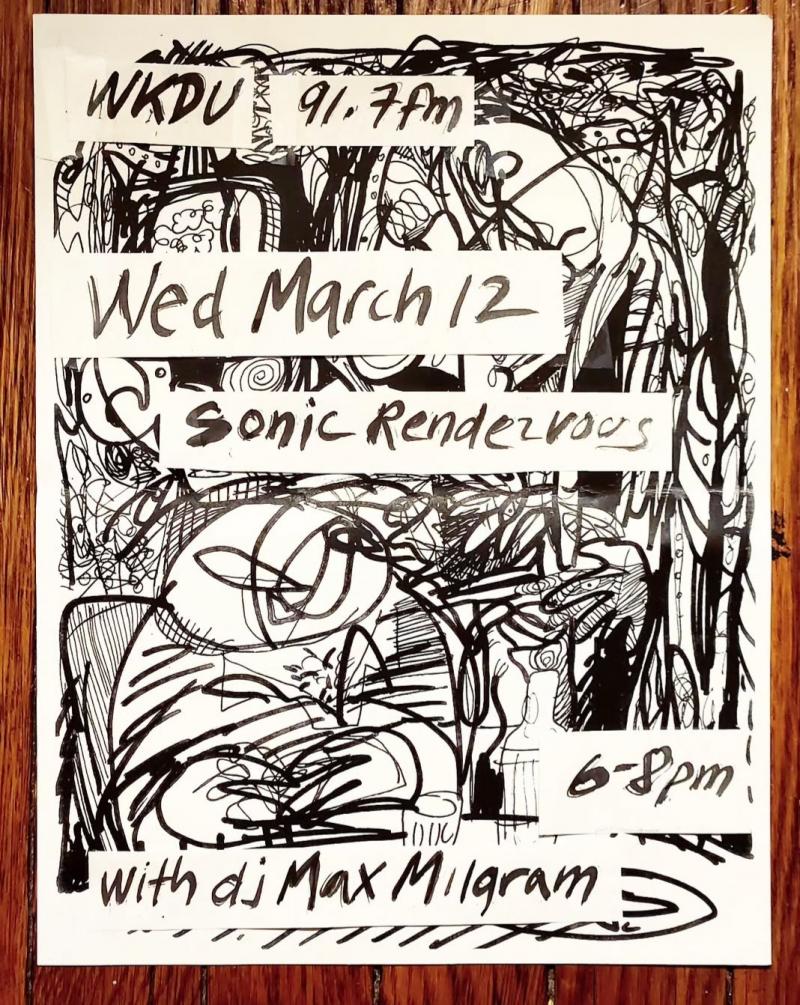 WKDU 91.7fm
Wed March 12
Sonic Rendezvous
6-8pm
with dj Max Milgram